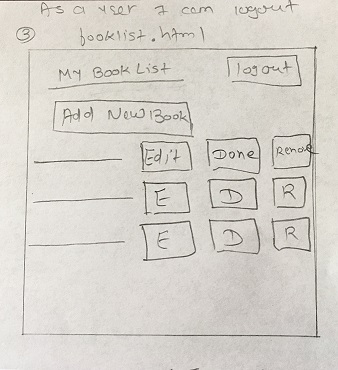 As a user I can logout
③ booklist.html
My Book List logout
Add New Book
Edit Done Remove
E D R
E D R